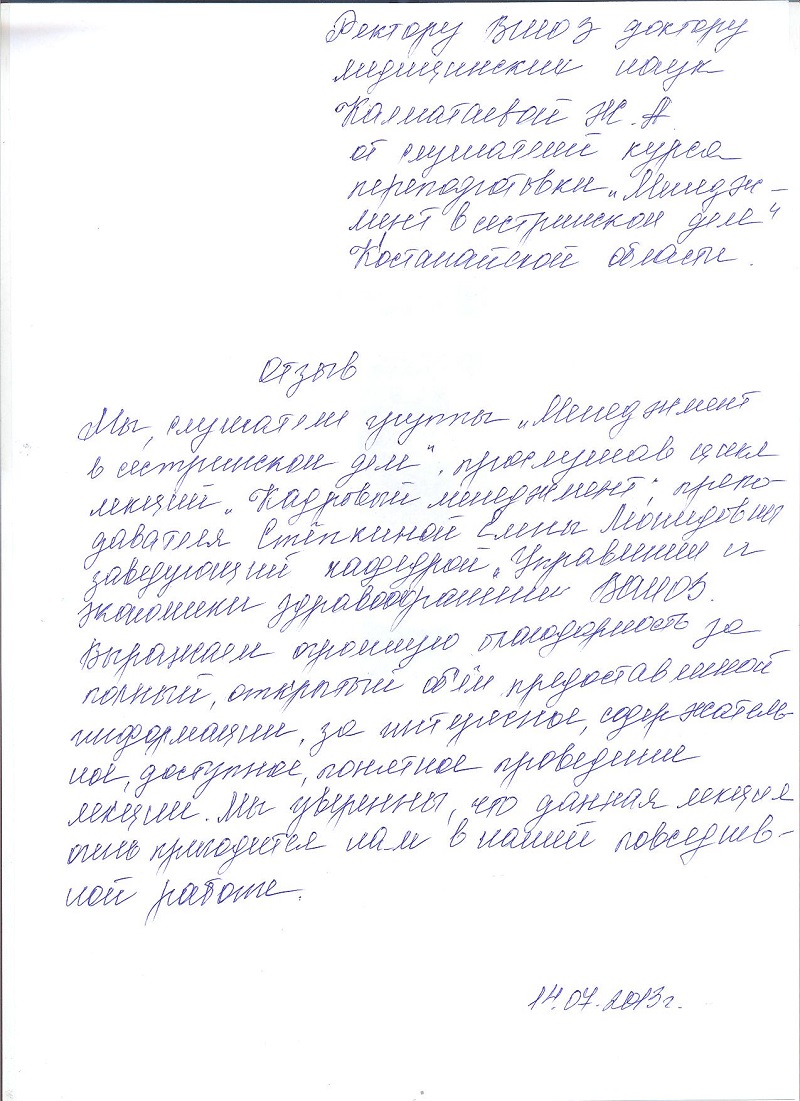 Ректору ВШОЗ доктору
медицинских наук
Калматаевой Ж.А
от слушателей курса
переподготовки „Менедж-
мент в сестринском деле"
Костанайской области.
Отзыв
Мы, слушатели группы „Менеджмент
в сестринском деле", прослушав цикл
лекций „Кадровый менеджмент", препо-
давателя Стёпкиной Елены Леонидовны
заведующий кафедрой „Управления и
экономики здравоохранения ВШОЗ.
Выражаем огромную благодарность за
полный, открытый объём предоставленной
информации, за интересное, содержатель-
ное, доступное, понятное проведение
лекции. Мы уверенны, что данная лекция
очень пригодится нам в нашей повседнев-
ной работе.
14.07.2013г.